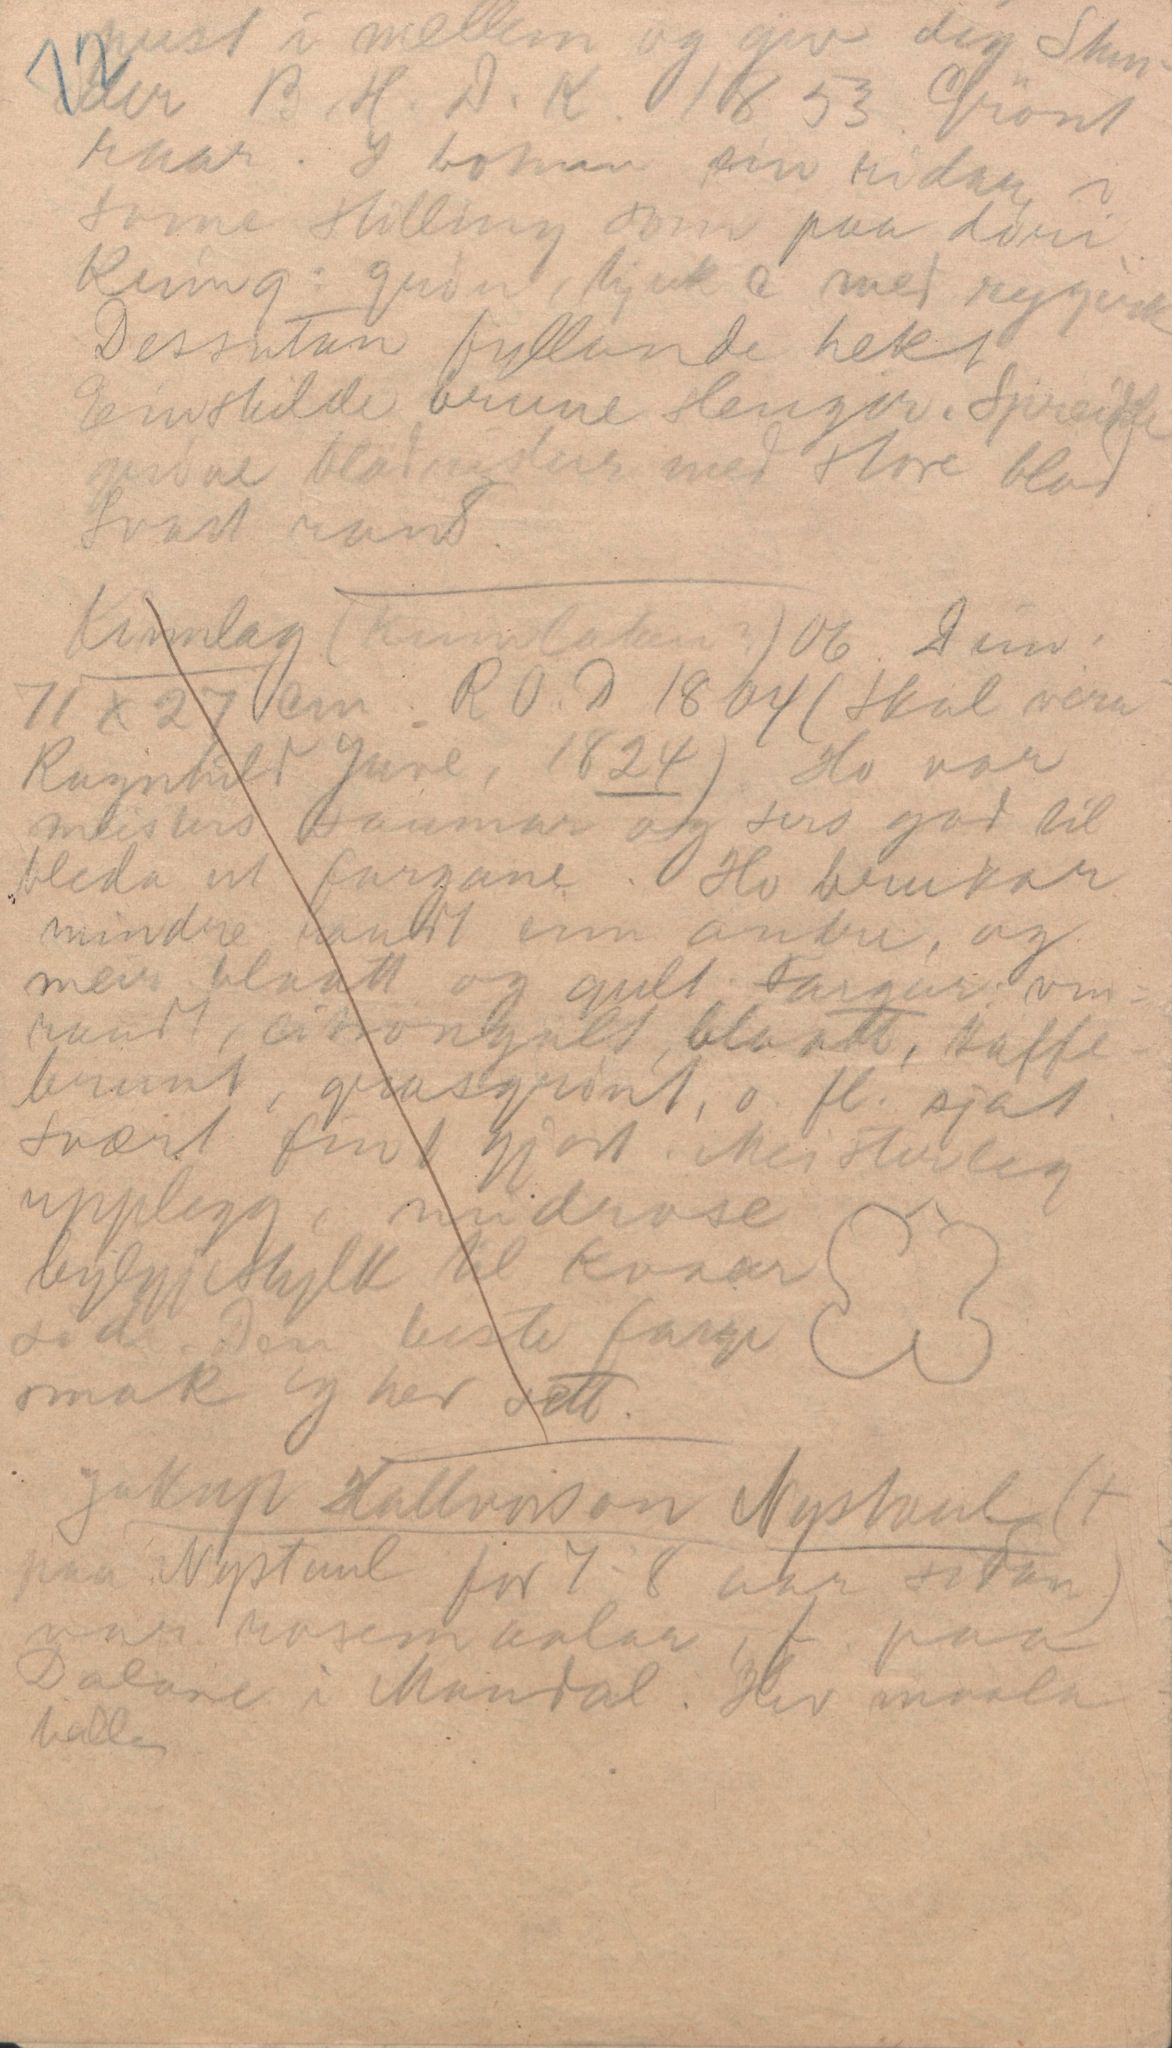 72
pust i mellem og giv dig Stun-
der B. H. D. K. 1853. Grönt
raar. I botnen ein ridar, i
some stilling som paa döri
Kring: grön, tjukk med
Dessutan fyllande hekt
Einskilde brune slengjor. Spreidde
gröne med store blad
Svart rand
Kinnlag (Kinnlaken?) 06. Dim.
71 x 27 cm. R O. D 1804 (skal vera
Ragnhild Juve, 1824). Ho var
meisters saumar og sers god til
bleda ut fargane. Ho brukar
mindre raudt enn andre, og
meir blaatt og gult. Fargar: vin-
raudt, citrongult, blaatt, kaffe-
brunt, grasgrönt, o. fl. sjat.
Svært fint gjort. Meisterleg
upplegg, midrose
bylgjestylk til kvaar
side. Den beste farge
smak eg hev sett.
Jakup Hallvorson Nystaul (†
paa Nystaul for 7-8 aar sidan)
var rosemaalar, f. paa
Dalane i Mandal. Hev maala